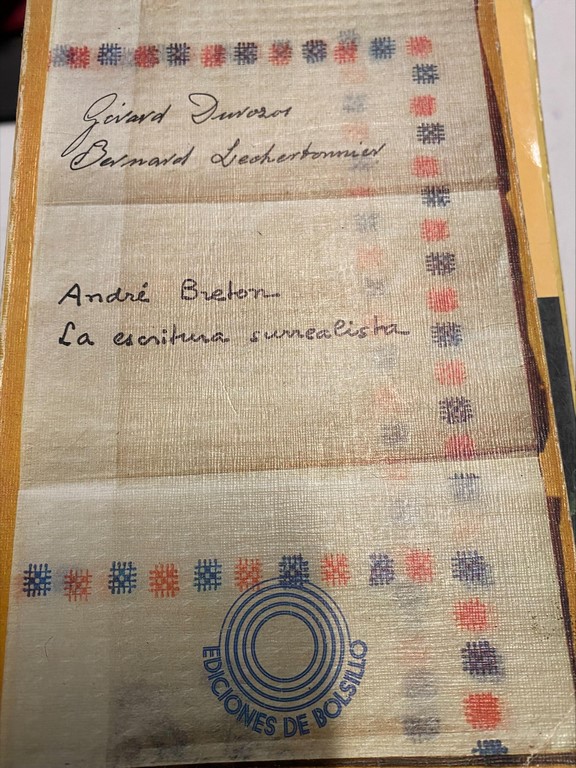 Gérard Durozoi
Bernard Lecherbonnier
André Breton
La escritura surrealista
EDICIONES DE BOLSILLO